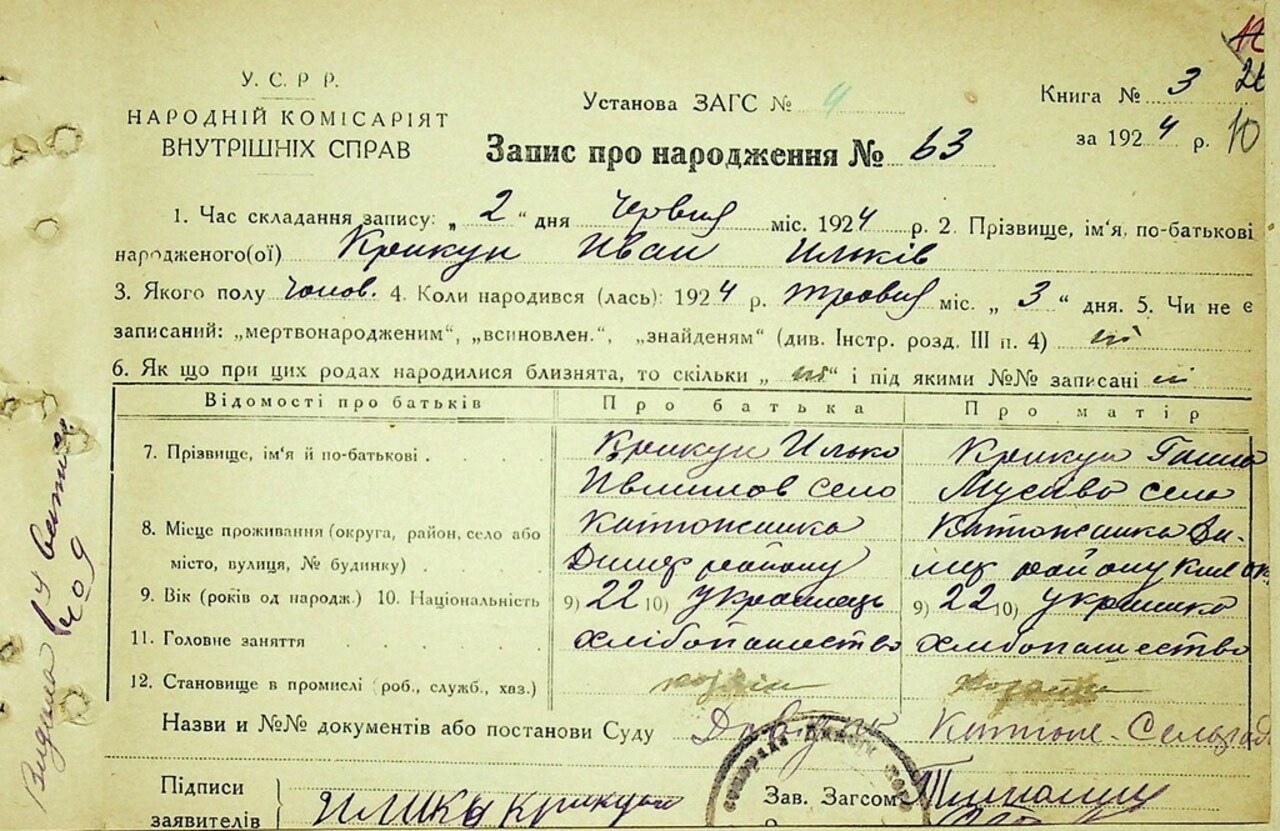 У. С. Р. Р.
НАРОДНІЙ КОМІСАРІЯТ
ВНУТРІШНІХ СПРАВ
Установа ЗАГС № 4
Книга № 3
за 1924 р. 10
Запис про народження № 63
1. Час складання запису: „ 2 “ дня Червня міс. 1924 р. 2. Прізвище, ім'я, по-батькові
народженого(ої) Крикун Иван Ильків
3. Якого полу чолов. 4. Коли народився (лась): 1924 р. травня міс. „ 3 “ дня. 5. Чи не є
записаний: „мертвонародженим“, „всиновлен.“, „знайденям“ (див. Інстр. розд. III п. 4) ні
6. Як що при цих родах народилися близнята, то скільки „ ні “ і під якими №№ записані ні
Відомості про батьків Про батька Про матір
7. Прізвище, ім'я й по-батькові Крикун Илько Крикун Ганна
село село
8. Місце проживання (округа, район, село або Катюжанка Катюжанка Ди-
місто, вулиця, № будинку) Димер району мер району Киів ок.
9. Вік (років од народж.) 10. Національність 9) 22 10) українець 9) 22 10) українка
11. Головне заняття хлібопашество хлібопашество
12. Становище в промислі (роб., служб., хаз.) хозяін хозяйка
Назви и №№ документів або постанови Суду Довідка Катюж. Сельрад
Підписи
заявителів Крикун
Зав. Загсом
Видана